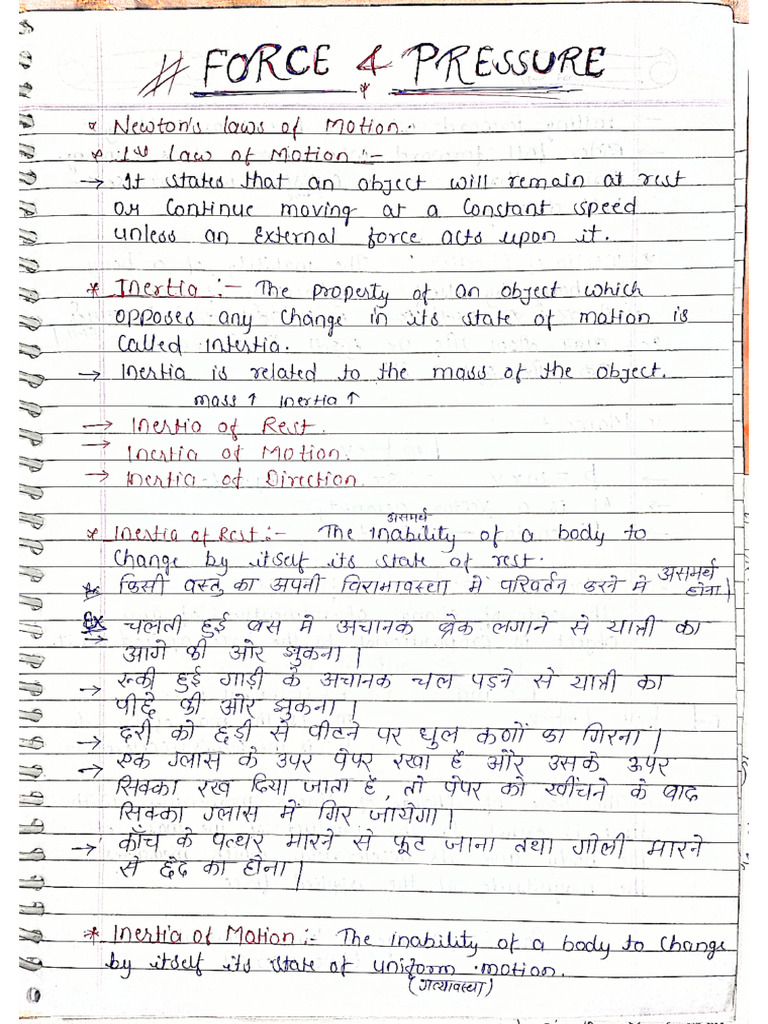 # FORCE & PRESSURE
* Newton's laws of Motion.
* 1st law of Motion :-
→ It states that an object will remain at rest
or continue moving at a constant speed
unless an External force acts upon it.
* Inertia :- The property of an object which
opposes any change in its state of motion is
called intertia.
→ Inertia is related to the mass of the object.
mass ↑ inertia ↑
→ Inertia of Rest.
→ Inertia of Motion.
→ Inertia of Direction.
असमर्थ
* Inertia of Rest :- The inability of a body to
change by itself its state of rest.
* किसी वस्तु का अपनी विरामावस्था में परिवर्तन करने मे असमर्थ होना।
Ex चलती हुई बस मे अचानक ब्रेक लगाने से यात्री का
→ आगे की ओर झुकना।
→ रूकी हुई गाड़ी के अचानक चल पड़ने से यात्री का
पीछे की ओर झुकना।
→ दरी को छड़ी से पीटने पर धुल कणों का गिरना।
→ एक ग्लास के उपर पेपर रखा है और उसके ऊपर
सिक्का रख दिया जाता है, तो पेपर को खींचने के बाद
सिक्का ग्लास में गिर जायेगा।
→ काँच के पत्थर मारने से फूट जाना तथा गोली मारने
से छेद का होना।
* Inertia of Motion :- The inability of a body to change
by itself its state of uniform motion.
(गत्यावस्था)